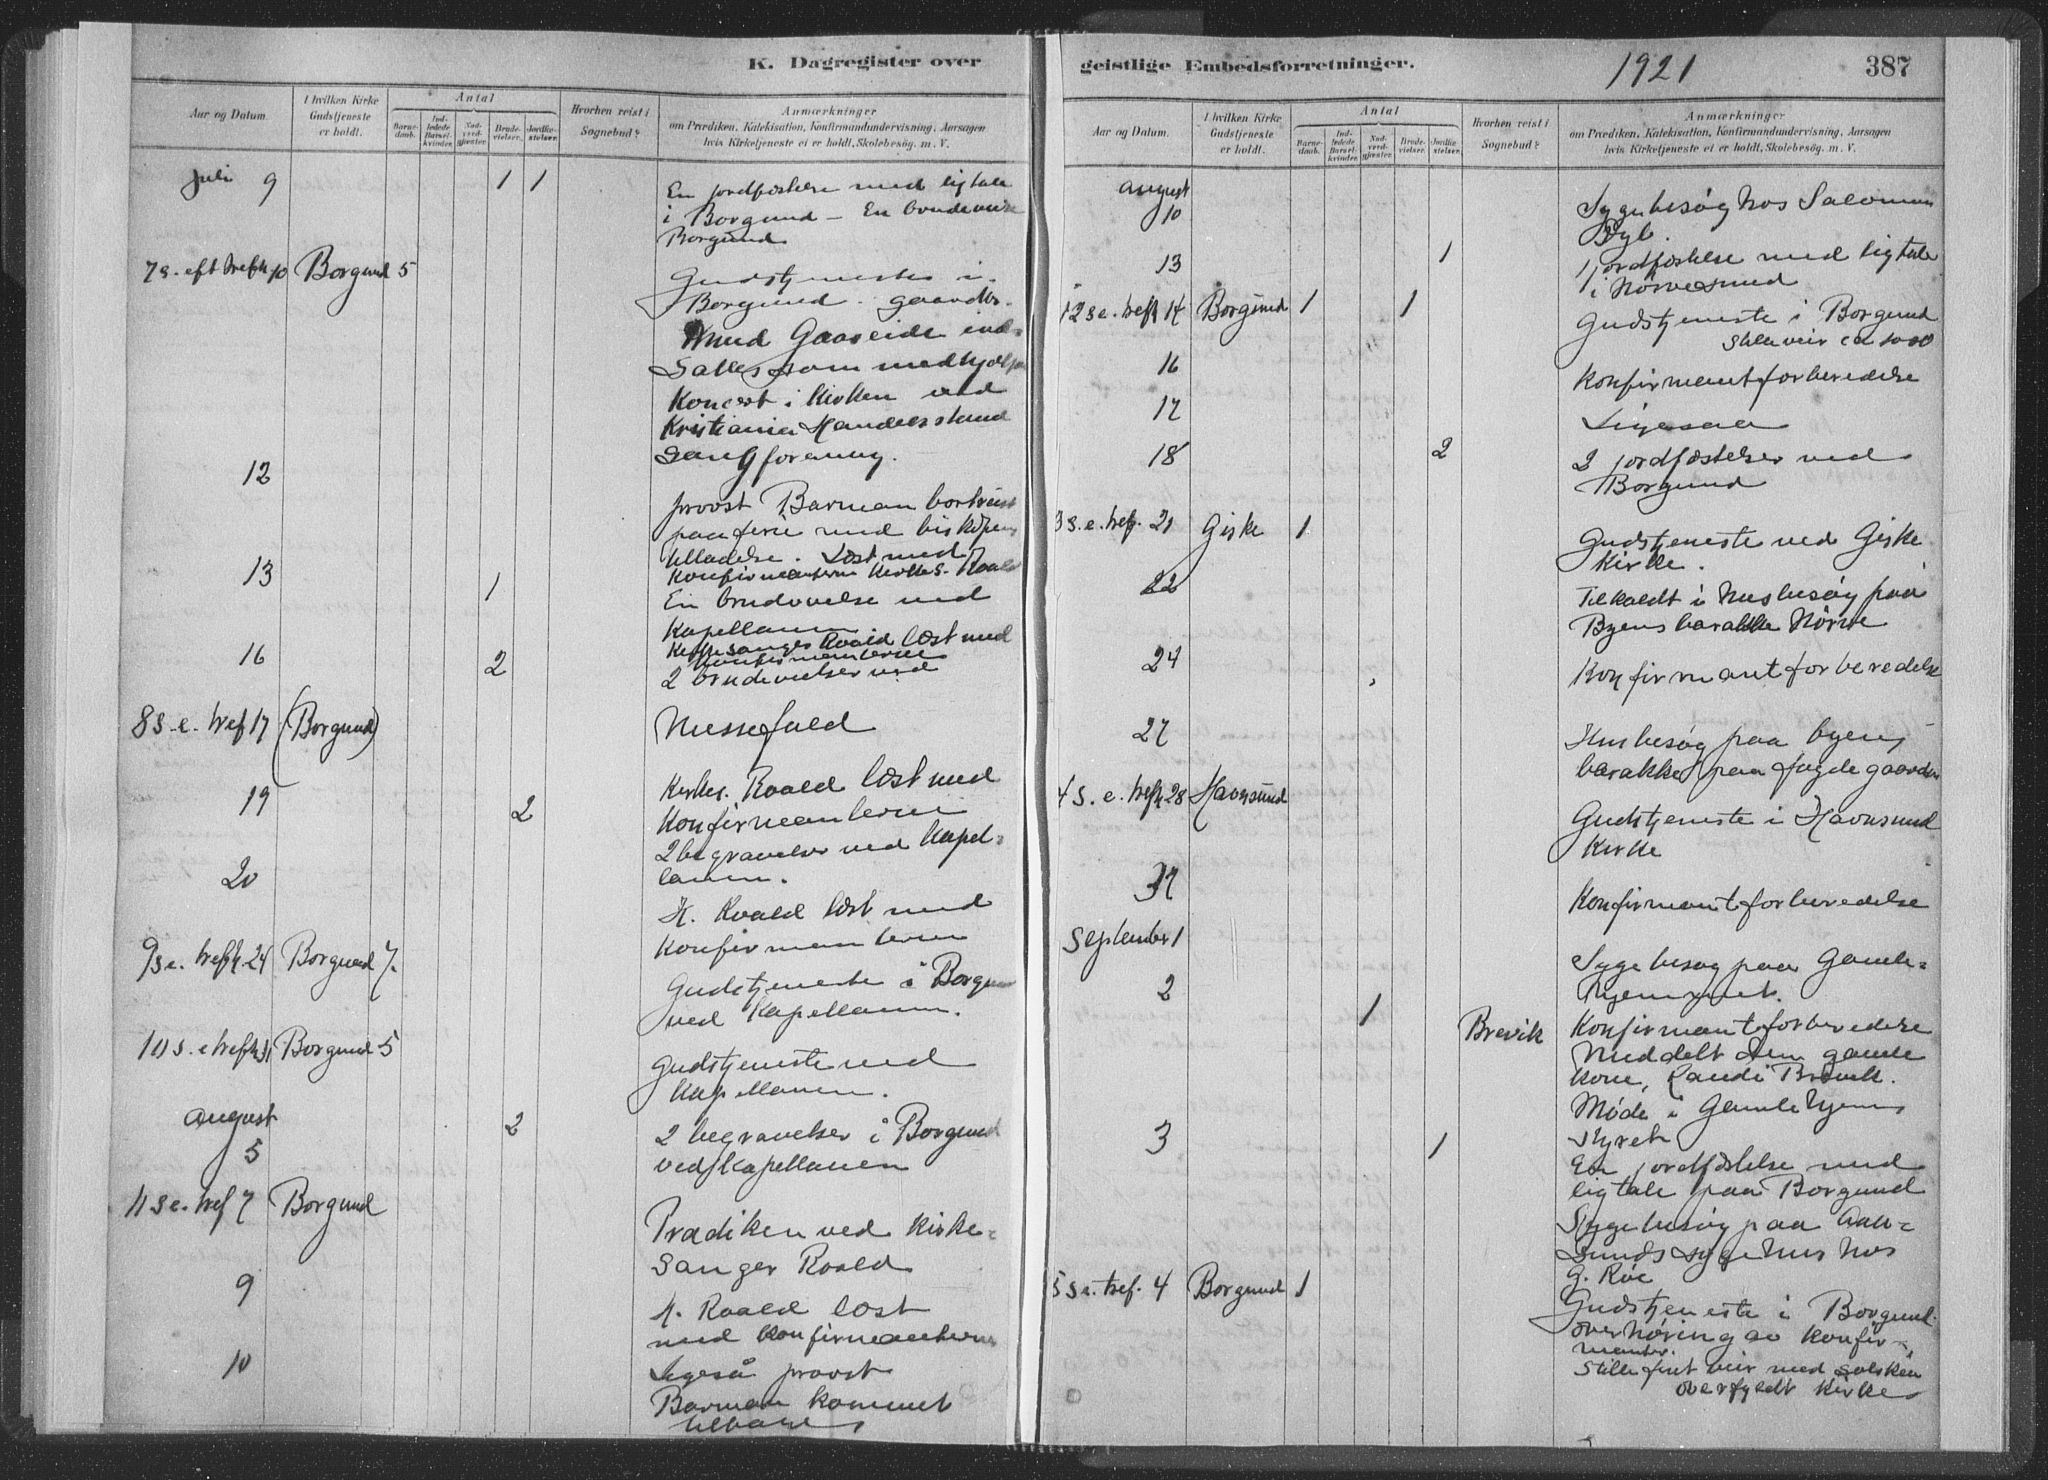 K. Dagregister over
Aar og Datum.
I hvilken Kirke
Gudstjeneste
er holdt.
Antal
Barne-
daab.
Ind-
ledede
Barsel-
kvinder.
Nad-
verd-
gjæster.
Brude-
vielser.
Jordfæ-
stelser.
Hvorhen reist i
Sognebud?
Anmærkninger
om Prædiken, Katekisation, Konfirmandundervisning, Aarsagen
hvis Kirketjeneste ei er holdt, Skolebesøg. m. V.
Juli 9 1 1 En jordfæstelse med ligtale
i Borgund – En brudevielse
Borgund
7 s. eft trefh 10 Borgund 5 Gudstjeneste i
Borgund. gaardbr.
Knud Gaaseide ind-
sattes som medhjælper
Koncert i Kirken ved
Kristiania Handelsstand
Sangforening.
12 provst Barman bortreist
paa ferie med biskopens
tilladelse. Læst med
konfirmanterne Kirkes. Roald
13 1 En brudevielse ved
Kapellanen
Kirkesanger Roald læst med
konfirmanterne
16 2 2 brudevielser ved
8 s. e. tref 17 (Borgund) Messefald
19 2 Kirkes. Roald læst med
Konfirmanterne
2 begravelser ved Kapel-
lanen.
20 K. Roald læst med
konfirmanterne
9 s e. trefh. 24 Borgund 7. Gudstjeneste i Borgund
ved Kapellanen.
10 s. e trefh 31 Borgund 5 Gudstjeneste ved
Kapellanen.
August
5 2 2 begravelser i Borgund
ved Kapellanen
11 s e. tref 7 Borgund Prædiken ved Kirke-
sanger Roald
9 K. Roald læst
med konfirmanterne
10 Ligeså provst
Barman kommet
tilbage
geistlige Embedsforretninger.
1921
387
Aar og Datum.
I hvilken Kirke
Gudstjeneste
er holdt.
Antal
Barne-
daab.
Ind-
ledede
Barsel-
kvinder.
Nad-
verd-
gjæster.
Brude-
vielser.
Jordfæ-
stelser.
Hvorhen reist i
Sognebud?
Anmærkninger
om Prædiken, Katekisation, Konfirmandundervisning, Aarsagen
hvis Kirketjeneste ei er holdt, Skolebesøg. m. V.
August
10 Sygebesøg hos Salomon
Dyb.
13 1 1 jordfæstelse med ligtale
i Nørvesund
12 s e. trefh 14 Borgund 1 1 Gudstjeneste i Borgund
ca 1000
16 Konfirmantforberedelse
17 Ligesaa
18 2 2 jordfæstelser ved
Borgund
3 s. e. tref. 21 Giske 1 Gudstjeneste ved Giske
Kirke.
22 Tilkaldt i husbesøg paa
Byens barakke Nørve
24 Konfirmantforberedelse
27 Husbesøg paa byens
barakke paa fogdegaarden
4 s. e. trefh 28 Havnsund Gudstjeneste i Havnsund
Kirke
31 Konfirmantforberedelse
September 1 Sygebesøg paa Gamle-
hjemmet.
2 1 Brevik Konfirmantforberedelse
Meddelt den gamle
kone, Randi Brevik.
Møde i Gamlehjems
styret
3 1 En jordfæstelse med
ligtale paa Borgund
Sygebesøg paa Aale-
sunds sygehus hos
G. Røe
5 s e. tref. 4 Borgund 1 Gudstjeneste i Borgund.
overhøring av konfir-
manter.
Stille fint veir med solskin
overfyldt Kirke